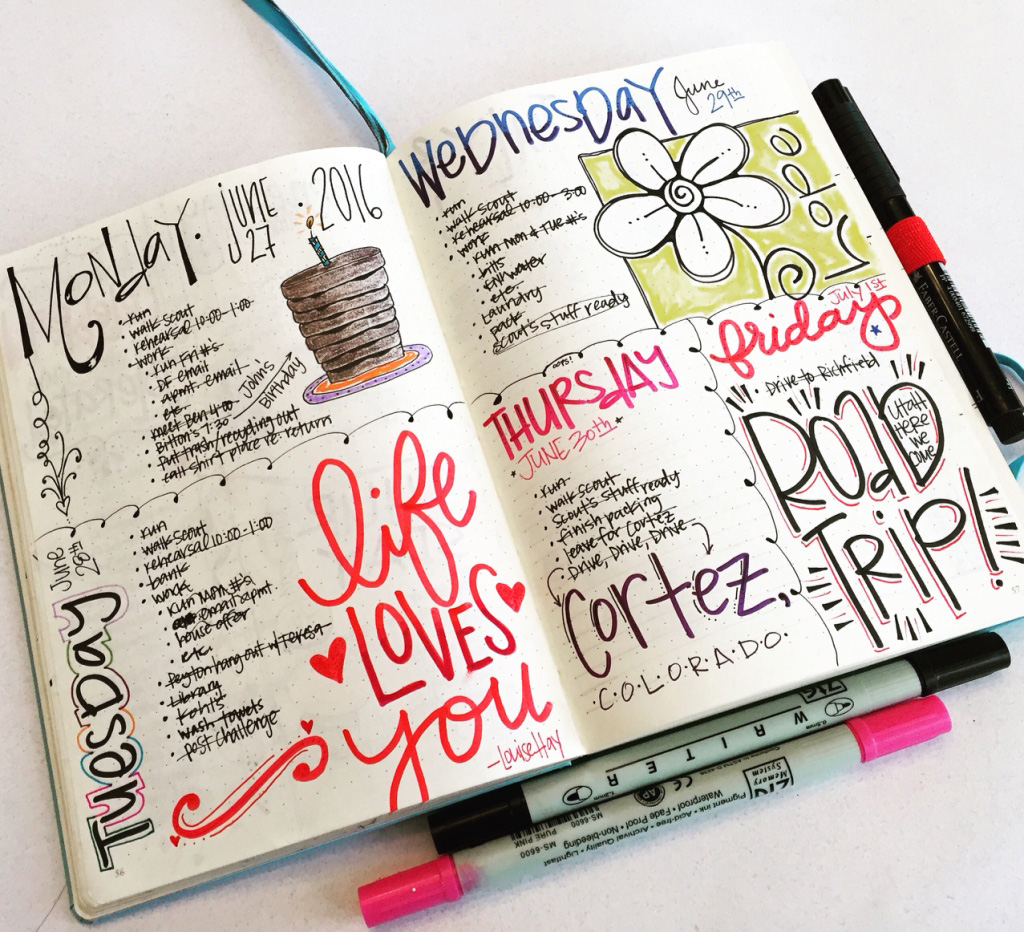 MONdAY. JUNE 27 . 2016
. run
. walk scout
. rehearsal 10:00-1:00
. work
. run Fri #'s
. DF email
. apmt. email
. etc.
. meet Ben 4:00
. Bitton's 7:30
. put trash/recycling out
. call shirt place re: return
John's Birthday
June 28th
Tuesday
. run
. walk scout
. rehearsal 10:00-1:00
. bank
. work
. run Mon #'s
. email apmt.
. house offer
. etc.
. Peyton hang out w/Teresa
. Library
. Kohl's
. wash towels
. post challenge
life
LOVES
you
-Louise Hay
36
WeDnesDaY June 29th
. run
. walk scout
. rehearsal 10:00-3:00
. work
. run Mon & Tue #'s
. bills
. etc.
. Laundry
. pack
. scout's stuff ready
oops!
THURSdAY
JUNE 30th
. run
. walk scout
. scout's stuff ready
. finish packing
. leave for Cortez
. Drive, Drive, Drive
Cortez,
C.O.L.O.R.A.D.O.
July 1st
friday
. Drive to Richfield
ROAD
UTAH Here We Come
TRIP!
37
FABER CASTELL
ZIG
WRITER
0.5mm
1.2mm
ZIG Memory System
CE
AP
MS-6600
PURE PINK
MS-6600
Waterproof • Fade Proof • Non-bleeding
Pigment ink • Acid-free • Archival Quality • Lightfast